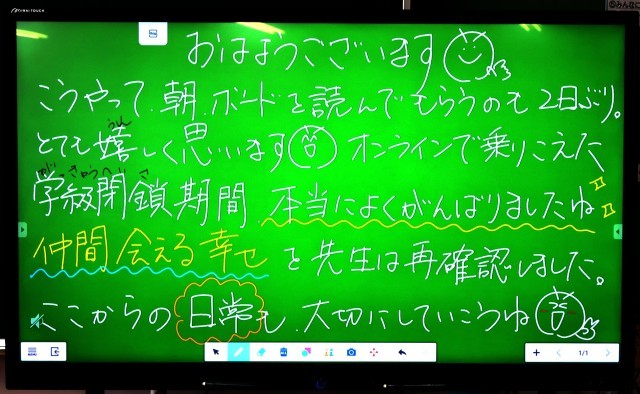 おはようございます
こうやって、朝、ボードを読んでもらうのも2日ぶり。
とても嬉しく思います オンラインで乗りこえた
学級閉鎖期間、本当によくがんばりましたね
仲間と会える幸せを先生は再確認しました。
ここからの日常も、大切にしていこうね
1/1